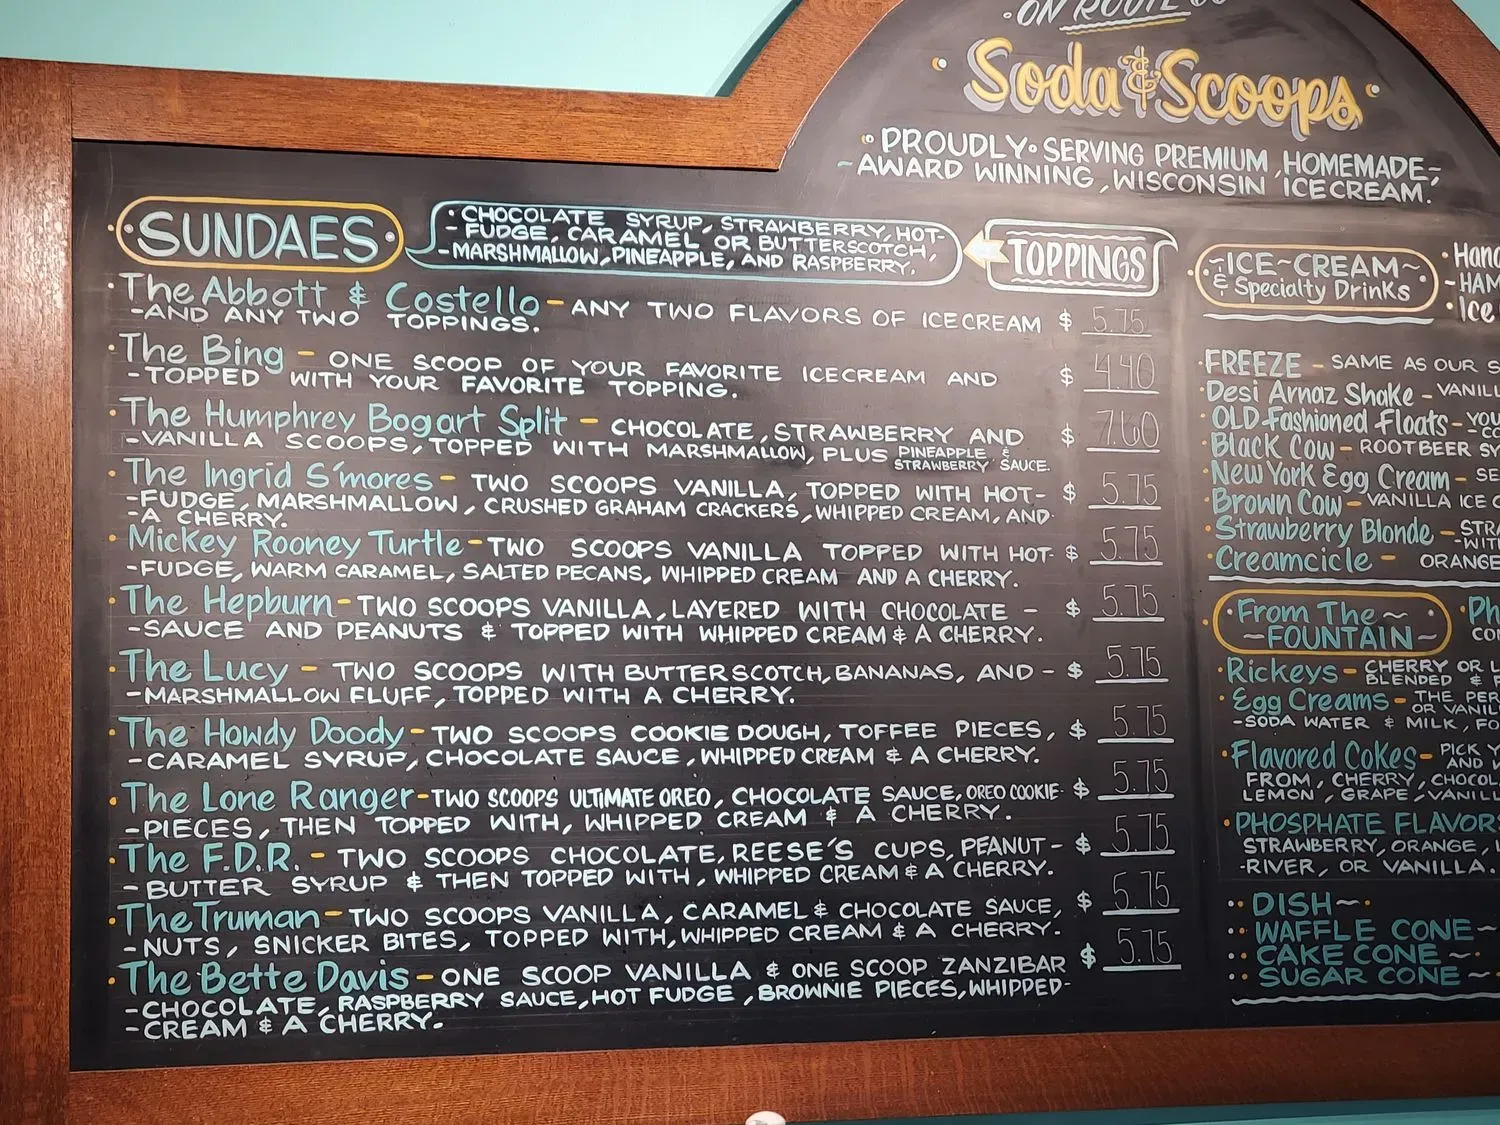 ·ON ROUTE
Soda & Scoops
PROUDLY · SERVING PREMIUM, HOMEMADE,
- AWARD WINNING, WISCONSIN ICECREAM.
SUNDAES
· CHOCOLATE SYRUP, STRAWBERRY, HOT-
- FUDGE, CARAMEL OR BUTTERSCOTCH,
- MARSHMALLOW, PINEAPPLE, AND RASPBERRY.
TOPPINGS
· The Abbott & Costello - ANY TWO FLAVORS OF ICECREAM $ 5.75
- AND ANY TWO TOPPINGS.
· The Bing - ONE SCOOP OF YOUR FAVORITE ICECREAM AND $ 4.40
- TOPPED WITH YOUR FAVORITE TOPPING.
· The Humphrey Bogart Split - CHOCOLATE, STRAWBERRY AND $ 7.60
- VANILLA SCOOPS, TOPPED WITH MARSHMALLOW, PLUS PINEAPPLE & STRAWBERRY SAUCE.
· The Ingrid S'mores - TWO SCOOPS VANILLA, TOPPED WITH HOT- $ 5.75
- FUDGE, MARSHMALLOW, CRUSHED GRAHAM CRACKERS, WHIPPED CREAM, AND-
- A CHERRY.
· Mickey Rooney Turtle - TWO SCOOPS VANILLA TOPPED WITH HOT- $ 5.75
- FUDGE, WARM CARAMEL, SALTED PECANS, WHIPPED CREAM AND A CHERRY.
· The Hepburn - TWO SCOOPS VANILLA, LAYERED WITH CHOCOLATE - $ 5.75
- SAUCE AND PEANUTS & TOPPED WITH WHIPPED CREAM & A CHERRY.
· The Lucy - TWO SCOOPS WITH BUTTERSCOTCH, BANANAS, AND - $ 5.75
- MARSHMALLOW FLUFF, TOPPED WITH A CHERRY.
· The Howdy Doody - TWO SCOOPS COOKIE DOUGH, TOFFEE PIECES, $ 5.75
- CARAMEL SYRUP, CHOCOLATE SAUCE, WHIPPED CREAM & A CHERRY.
· The Lone Ranger - TWO SCOOPS ULTIMATE OREO, CHOCOLATE SAUCE, OREO COOKIE- $ 5.75
- PIECES, THEN TOPPED WITH, WHIPPED CREAM & A CHERRY.
· The F.D.R. - TWO SCOOPS CHOCOLATE, REESE'S CUPS, PEANUT - $ 5.75
- BUTTER SYRUP & THEN TOPPED WITH, WHIPPED CREAM & A CHERRY.
· The Truman - TWO SCOOPS VANILLA, CARAMEL & CHOCOLATE SAUCE, $ 5.75
- NUTS, SNICKER BITES, TOPPED WITH, WHIPPED CREAM & A CHERRY.
· The Bette Davis - ONE SCOOP VANILLA & ONE SCOOP ZANZIBAR $ 5.75
- CHOCOLATE, RASPBERRY SAUCE, HOT FUDGE, BROWNIE PIECES, WHIPPED-
- CREAM & A CHERRY.
~ICE~CREAM~
& Specialty Drinks
· Hand
- HAM
· Ice
· FREEZE - SAME AS OUR S
Desi Arnaz Shake - VANILL
· OLD Fashioned Floats - YOU
· Black Cow - ROOTBEER SY
· New York Egg Cream - SE
· Brown Cow - VANILLA ICE C
· Strawberry Blonde - STRA
- WITH
· Creamcicle - ORANGE
· From The ~
~ FOUNTAIN
· Ph
CO
· Rickeys - CHERRY OR L
BLENDED & F
· Egg Creams - THE PER
OR VANIL
- SODA WATER & MILK, FO
· Flavored Cokes - PICK Y
AND V
FROM, CHERRY, CHOCOL
LEMON, GRAPE, VANILL
· PHOSPHATE FLAVORS
STRAWBERRY, ORANGE, L
- RIVER, OR VANILLA.
·· DISH ~·
·· WAFFLE CONE ~
·· CAKE CONE ~·
·· SUGAR CONE ~·